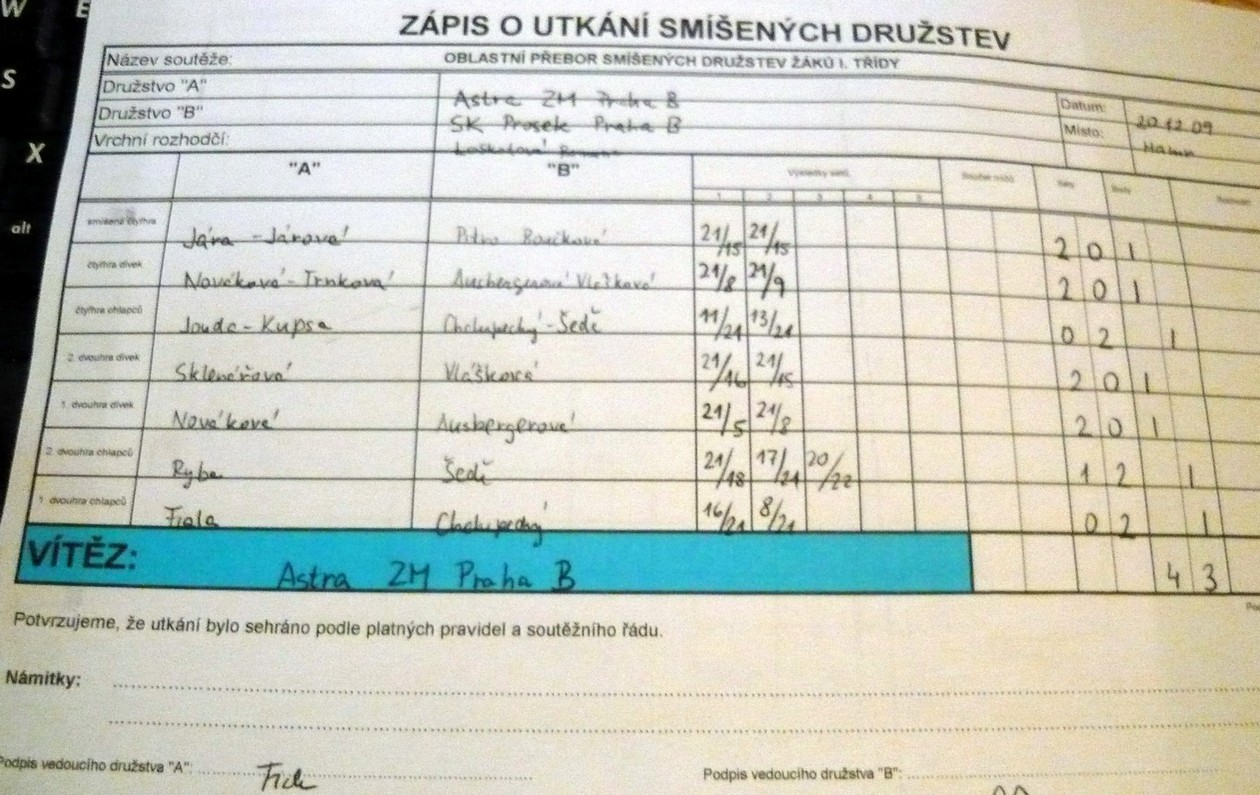 W E
S
X
alt
ZÁPIS O UTKÁNÍ SMÍŠENÝCH DRUŽSTEV
Název soutěže: OBLASTNÍ PŘEBOR SMÍŠENÝCH DRUŽSTEV ŽÁKŮ I. TŘÍDY
Družstvo "A" Astra ZM Praha B
Datum: 20.12.09
Družstvo "B" SK Prosek Praha B
Místo:
Vrchní rozhodčí:
"A" "B" Výsledky setů
1 2 3 4 5 Součet míčů Sety Body
smíšená čtyřhra Jára - Járová 21/15 21/15 2 0 1
čtyřhra dívek Nováková - Trnková Ausbergerová Vlašková 21/8 21/9 2 0 1
čtyřhra chlapců Joudo - Kupsa Chchupecký - Šedi 11/21 13/21 0 2 1
2. dvouhra dívek Sklenářová Vlášková 21/16 21/15 2 0 1
1. dvouhra dívek Nováková Ausbergerová 21/5 21/8 2 0 1
2. dvouhra chlapců Ryba Šedi 21/18 17/21 20/22 1 2 1
1. dvouhra chlapců Fiala 16/21 8/21 0 2 1
VÍTĚZ: Astra ZM Praha B 4 3
Potvrzujeme, že utkání bylo sehráno podle platných pravidel a soutěžního řádu.
Námitky:
Podpis vedoucího družstva "A": Podpis vedoucího družstva "B":